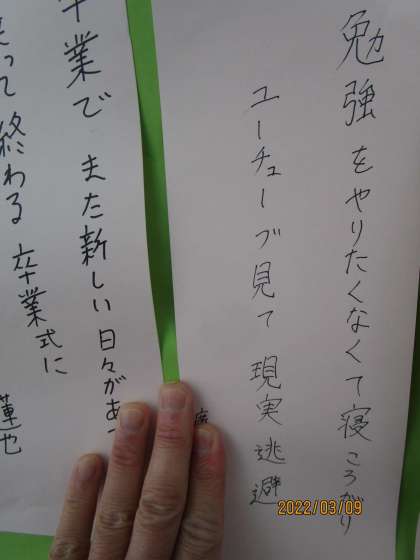 勉強をやりたくなくて寝ころがり
ユーチューブ見て現実逃避
卒業でまた新しい日々があ
って終わる卒業式に
蓮也
2022/03/09